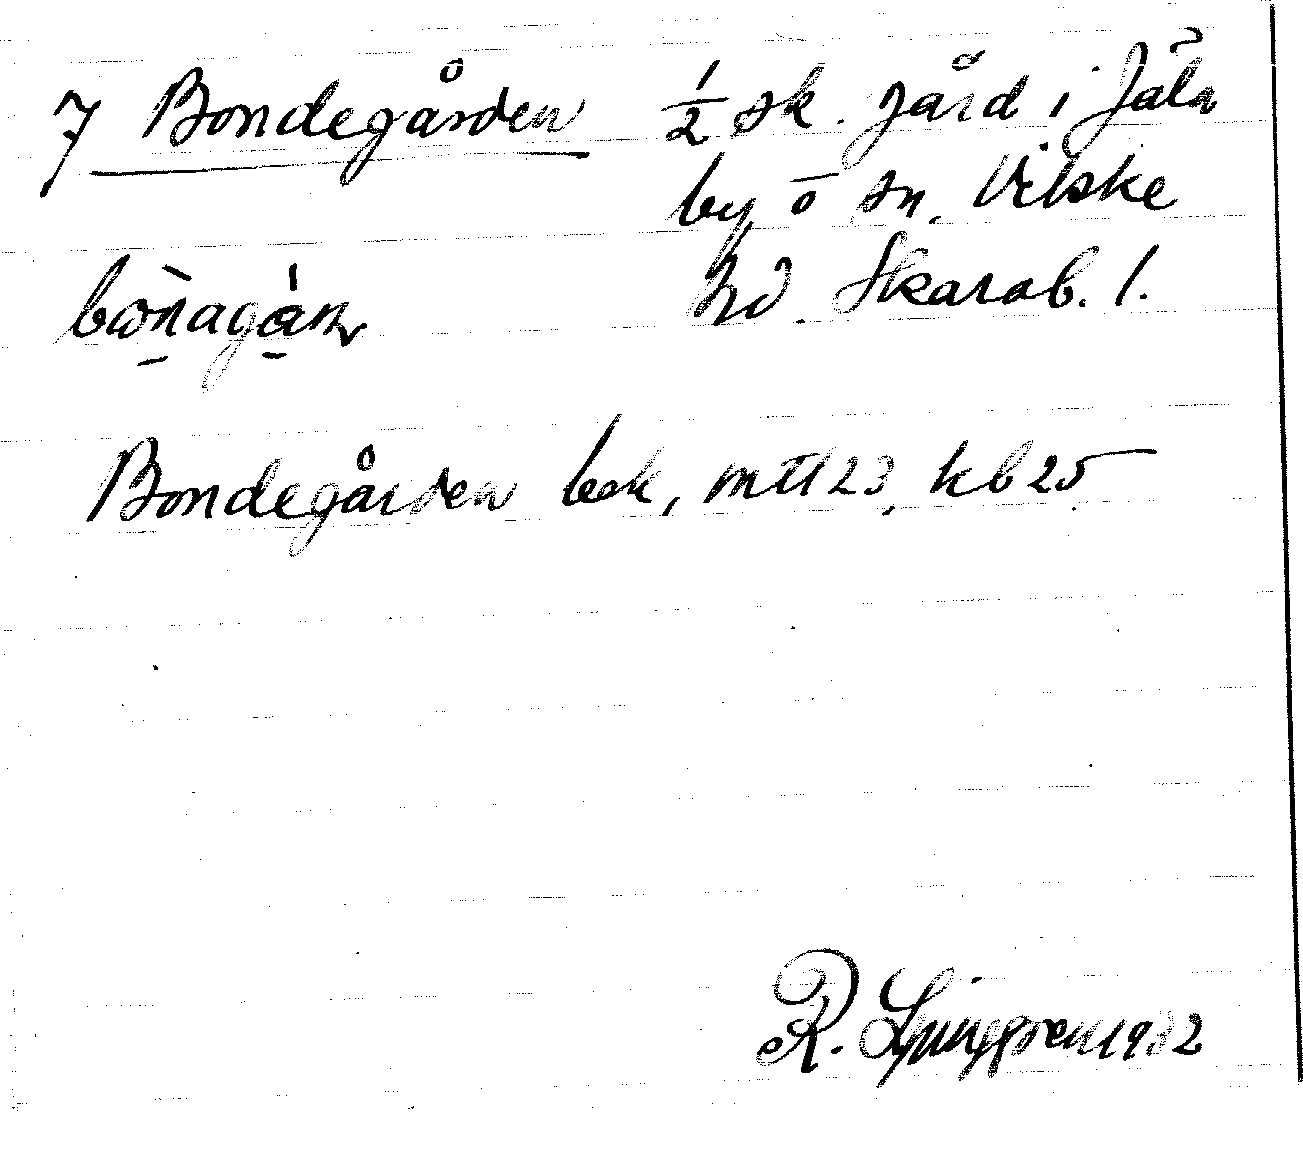 7 Bondegården ½ sk. gård i Jäla
by o sn. Vilske
hd. Skarab. l.
bonagán
Bondegården bek, mtl 23, kb 25
R. Ljunggren 1932